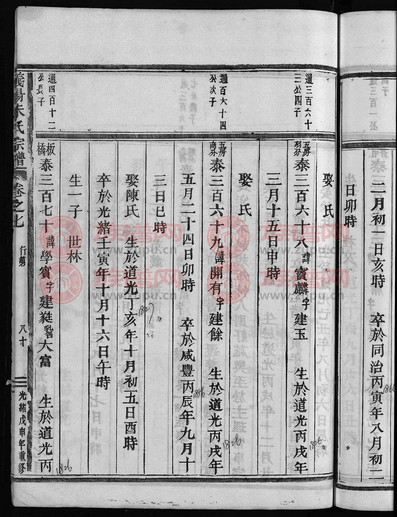 二月初一日亥時 卒於同治丙寅年八月初二
日卯時
通三百六十
三公四子
娶 氏
泰三百六十八諱寶麟字建玉 生於道光丙戌年
1826
三月十五日申時
通百六十四
公次子
娶 氏
泰三百六十九諱開有字建餘 生於道光丙戌年
1826
五月二十四日卯時 卒於咸豐丙辰年九月十
1856
三日巳時
娶陳氏 生於道光丁亥年十月初五日酉時
卒於光緒壬寅年十月十六日午時
生一子 世林
通四百十二
公長子
泰三百七十諱學賓字建 大富 生於道光丙
1826
義陽朱氏宗譜 卷之七 行第 八十 光緒戊申年重修